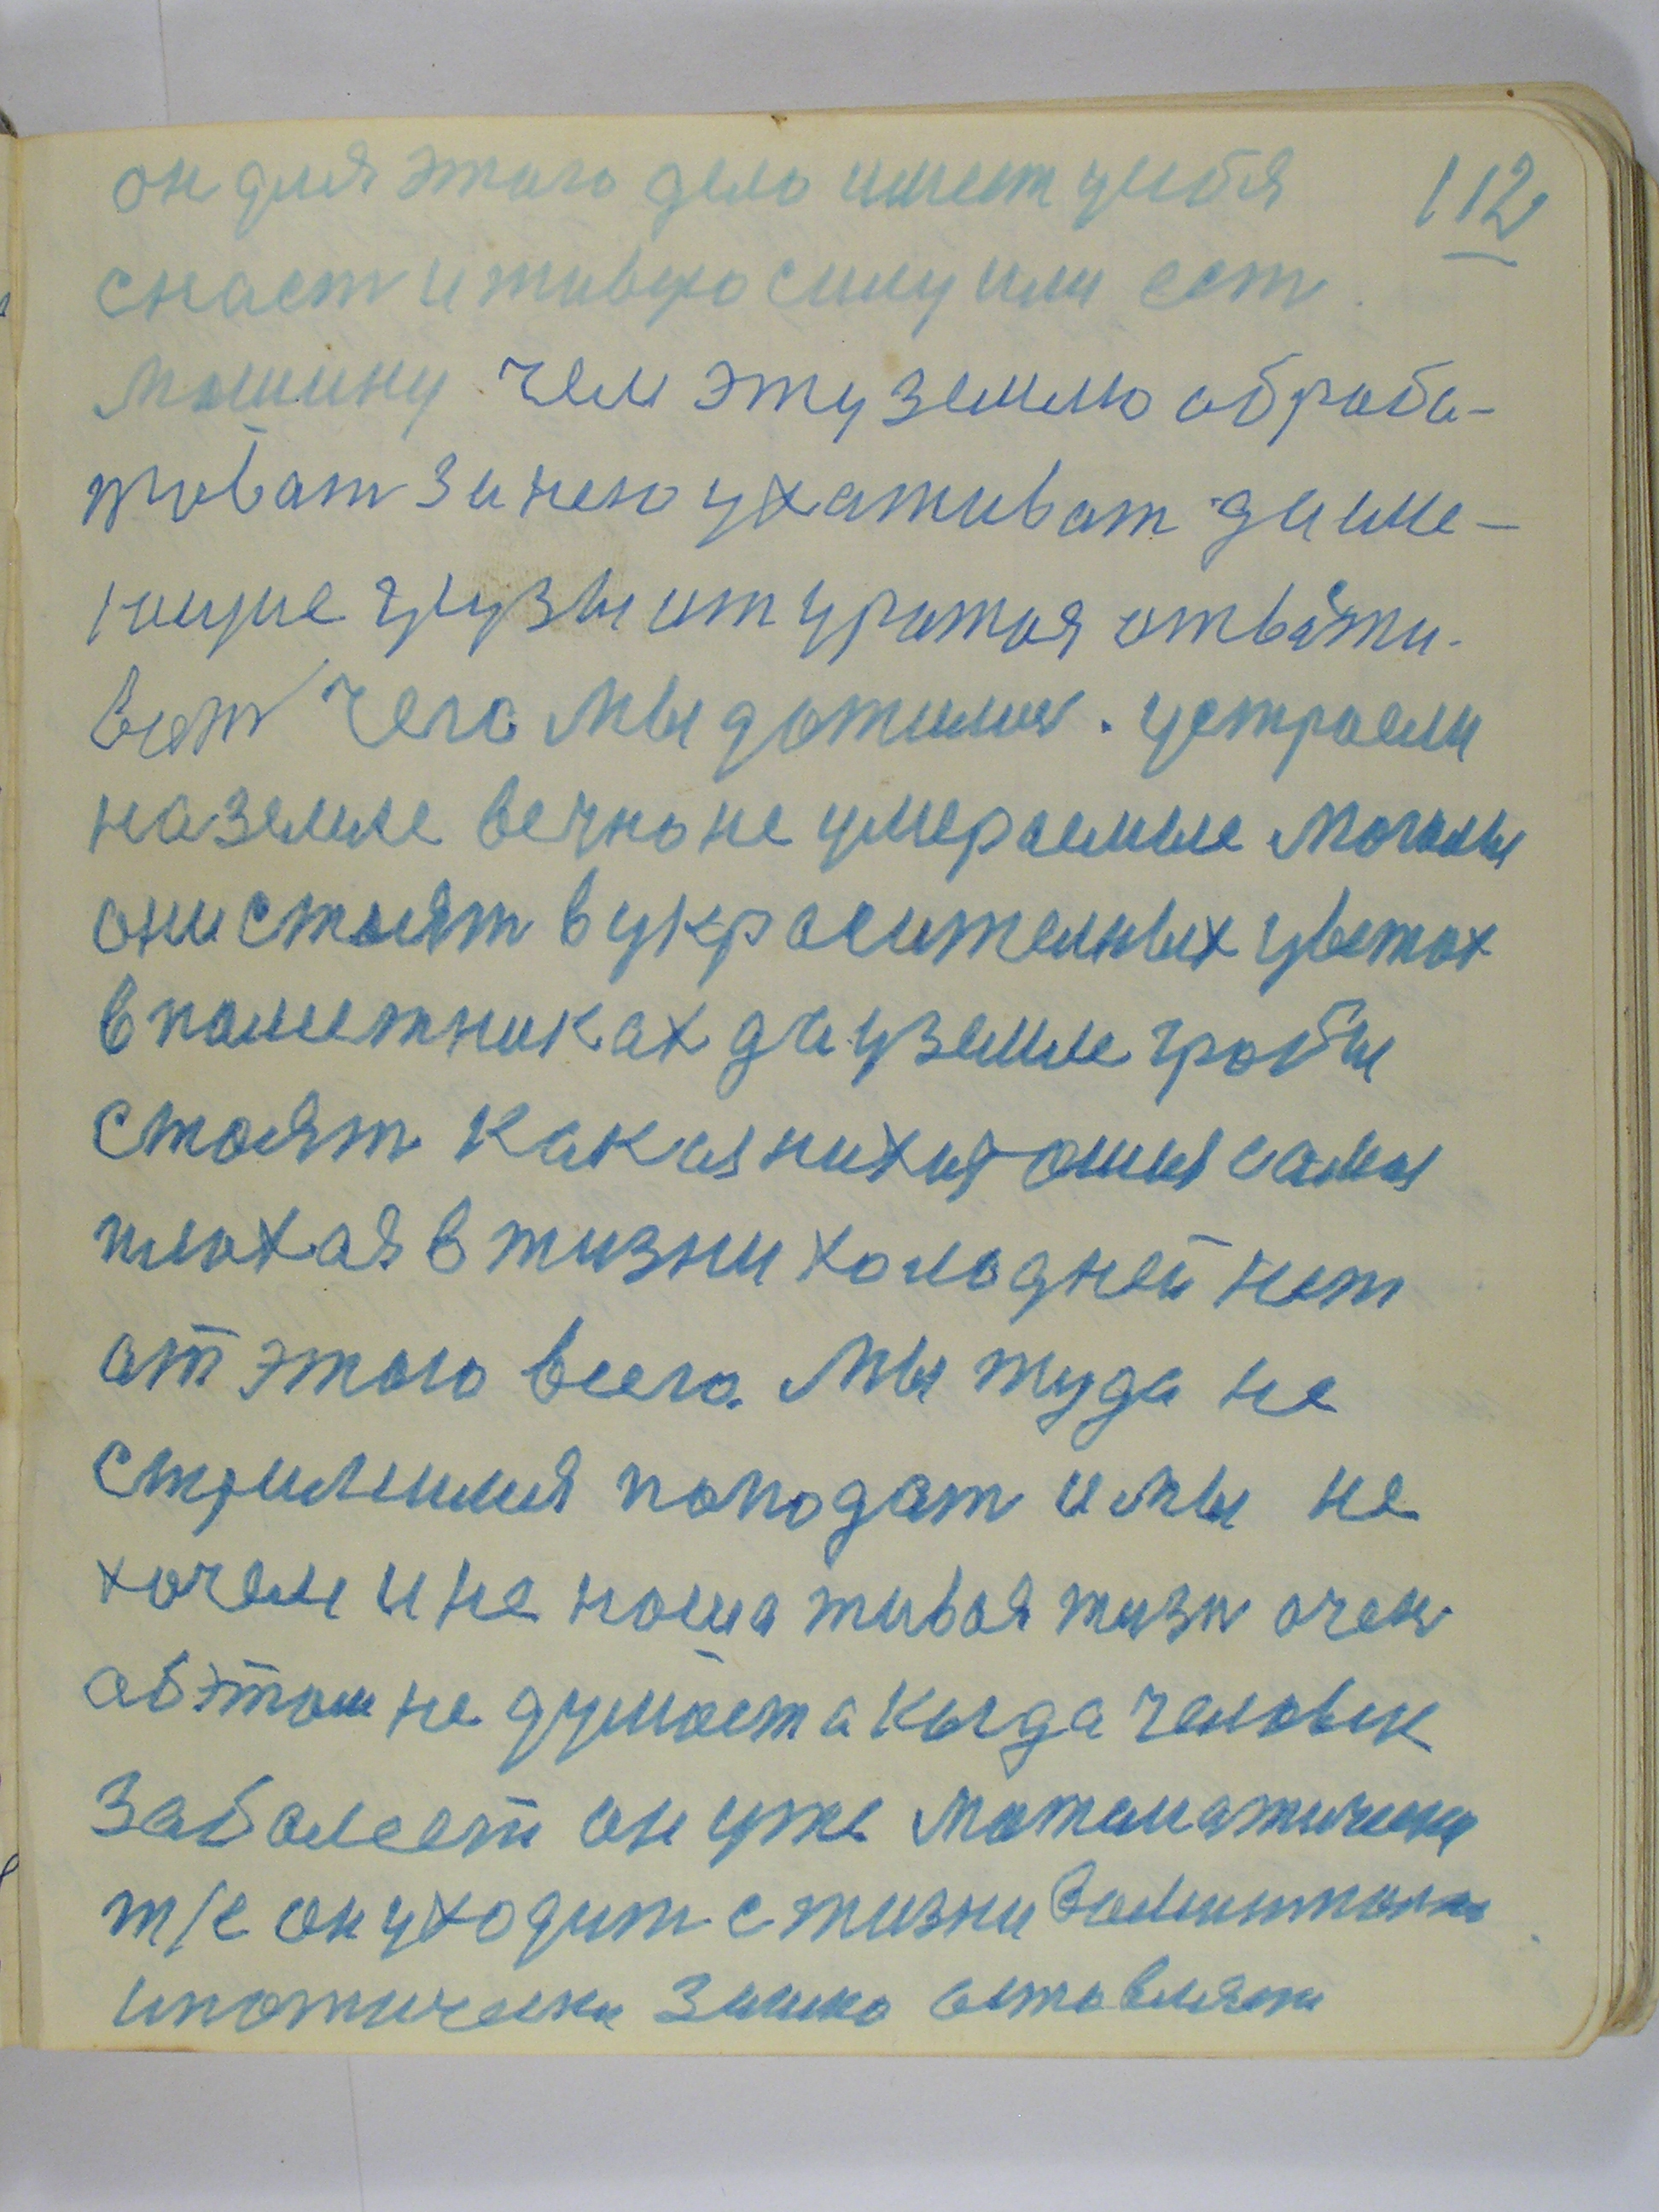 он для этого дело имеет усибя 112
снаст и живую силу или ест
машину чем эту землю обраба-
товат за нею ухаживат да име-
ющие грузы
вот чего мы дожились. устроели
на земле вечно не умераемые могилы
они стоят в украсительных цветах
в пометниках да у земле гробы
стоят какая них самая
плохая в жизни холодней нет
от этого всего. Мы туда не
стримимся пападат и мы не
хочем и не наша живая жизн очен
об этом не думает а кагда человек
заболеет он уже математически
т/е он уходит с жизни
оставляет